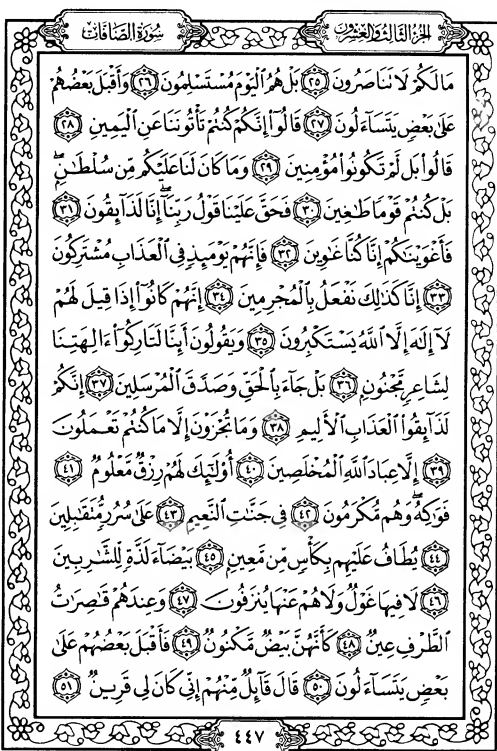 الجزء الثالث والعشرون
سورة الصافات
مَالَكُمْ لَا تَنَاصَرُونَ ٢٥ بَلْ هُمُ ٱلْيَوْمَ مُسْتَسْلِمُونَ ٢٦ وَأَقْبَلَ بَعْضُهُمْ
عَلَىٰ بَعْضٍ يَتَسَآءَلُونَ ٢٧ قَالُوٓا۟ إِنَّكُمْ كُنتُمْ تَأْتُونَنَا عَنِ ٱلْيَمِينِ ٢٨
قَالُوا۟ بَل لَّمْ تَكُونُوا۟ مُؤْمِنِينَ ٢٩ وَمَا كَانَ لَنَا عَلَيْكُم مِّن سُلْطَٰنٍۭ ۖ
بَلْ كُنتُمْ قَوْمًا طَٰغِينَ ٣٠ فَحَقَّ عَلَيْنَا قَوْلُ رَبِّنَآ ۖ إِنَّا لَذَآئِقُونَ ٣١
فَأَغْوَيْنَٰكُمْ إِنَّا كُنَّا غَٰوِينَ ٣٢ فَإِنَّهُمْ يَوْمَئِذٍ فِى ٱلْعَذَابِ مُشْتَرِكُونَ
٣٣ إِنَّا كَذَٰلِكَ نَفْعَلُ بِٱلْمُجْرِمِينَ ٣٤ إِنَّهُمْ كَانُوٓا۟ إِذَا قِيلَ لَهُمْ
لَآ إِلَٰهَ إِلَّا ٱللَّهُ يَسْتَكْبِرُونَ ٣٥ وَيَقُولُونَ أَئِنَّا لَتَارِكُوٓا۟ ءَالِهَتِنَا
لِشَاعِرٍ مَّجْنُونٍۭ ٣٦ بَلْ جَآءَ بِٱلْحَقِّ وَصَدَّقَ ٱلْمُرْسَلِينَ ٣٧ إِنَّكُمْ
لَذَآئِقُوا۟ ٱلْعَذَابِ ٱلْأَلِيمِ ٣٨ وَمَا تُجْزَوْنَ إِلَّا مَا كُنتُمْ تَعْمَلُونَ
٣٩ إِلَّا عِبَادَ ٱللَّهِ ٱلْمُخْلَصِينَ ٤٠ أُو۟لَٰٓئِكَ لَهُمْ رِزْقٌ مَّعْلُومٌ ٤١
فَوَٰكِهُ ۖ وَهُم مُّكْرَمُونَ ٤٢ فِى جَنَّٰتِ ٱلنَّعِيمِ ٤٣ عَلَىٰ سُرُرٍ مُّتَقَٰبِلِينَ
٤٤ يُطَافُ عَلَيْهِم بِكَأْسٍ مِّن مَّعِينٍۭ ٤٥ بَيْضَآءَ لَذَّةٍ لِّلشَّٰرِبِينَ
٤٦ لَا فِيهَا غَوْلٌ وَلَا هُمْ عَنْهَا يُنزَفُونَ ٤٧ وَعِندَهُمْ قَٰصِرَٰتُ
ٱلطَّرْفِ عِينٌ ٤٨ كَأَنَّهُنَّ بَيْضٌ مَّكْنُونٌ ٤٩ فَأَقْبَلَ بَعْضُهُمْ عَلَىٰ
بَعْضٍ يَتَسَآءَلُونَ ٥٠ قَالَ قَآئِلٌ مِّنْهُمْ إِنِّى كَانَ لِى قَرِينٌ ٥١
٤٤٧